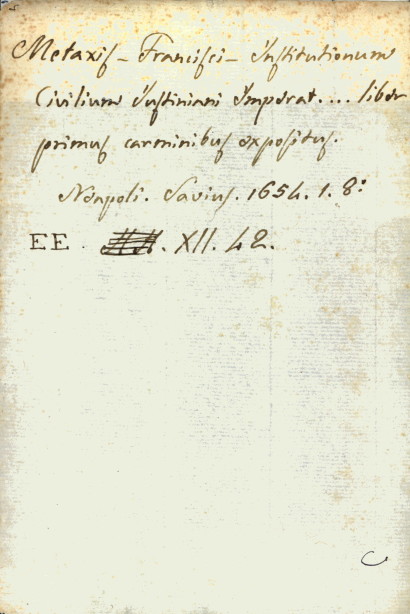 Metaxis - Francisci - Institutionum
Civilium Justiniani Imperat.... liber
primus carminibus expositus.
Neapoli. Savius. 1654. 1. 8:
EE. XII. 42.
C